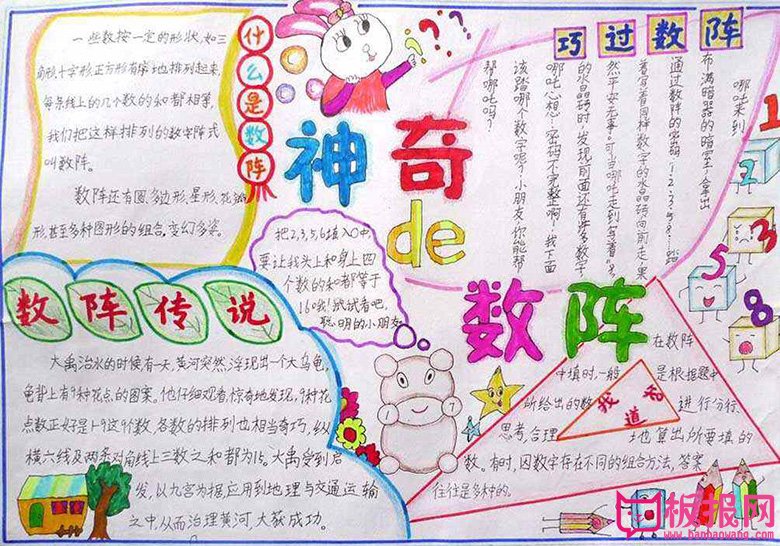 什么是数阵
一些数按一定的形状,如三
角形十字形正方形有序地排列起来,
每条线上的几个数的和都相等,
我们把这样排列的数字阵式
叫数阵。
数阵还有圆,多边形,星形,花瓣
形,甚至多种图形的组合,变幻多姿。
神奇
de
数阵
巧过数阵
哪吒来到
布满暗器的暗室,拿出
通过数阵的密码1·2·3·5·8……踏
着写着同样数字的水晶砖向前走,果
然平安无事。可当哪吒走到写着8
的水晶砖时,发现前面还有许多数字,
哪吒心想:密码不完整啊!我下面
该踏哪个数字呢?小朋友,你能帮
帮哪吒吗?
1
2
3
5
8
把2,3,5,6填入○中,
要让我头上和身上四
个数的和都等于
16哦!试试看吧,
聪明的小朋友
1
7
数阵传说
大禹治水的时候有一天,黄河突然浮现出一个大乌龟,
龟背上有9种花点的图案。他仔细观看,惊奇地发现,9种花
点数正好是1~9这9个数,各数的排列也相当奇巧,纵
横六线及两条对角线上三数之和都为15。大禹受到启
发,以九宫为据,应用到地理与交通运输
之中,从而治理黄河,大获成功。
我知道
在数阵
中填时,一般是根据题中
所给出的数进行分行、
思考,合理地算出所要填的
数。有时,因数字存在不同的组合方法,答案
往往是多种的。
板报网
www.banbaowang.com